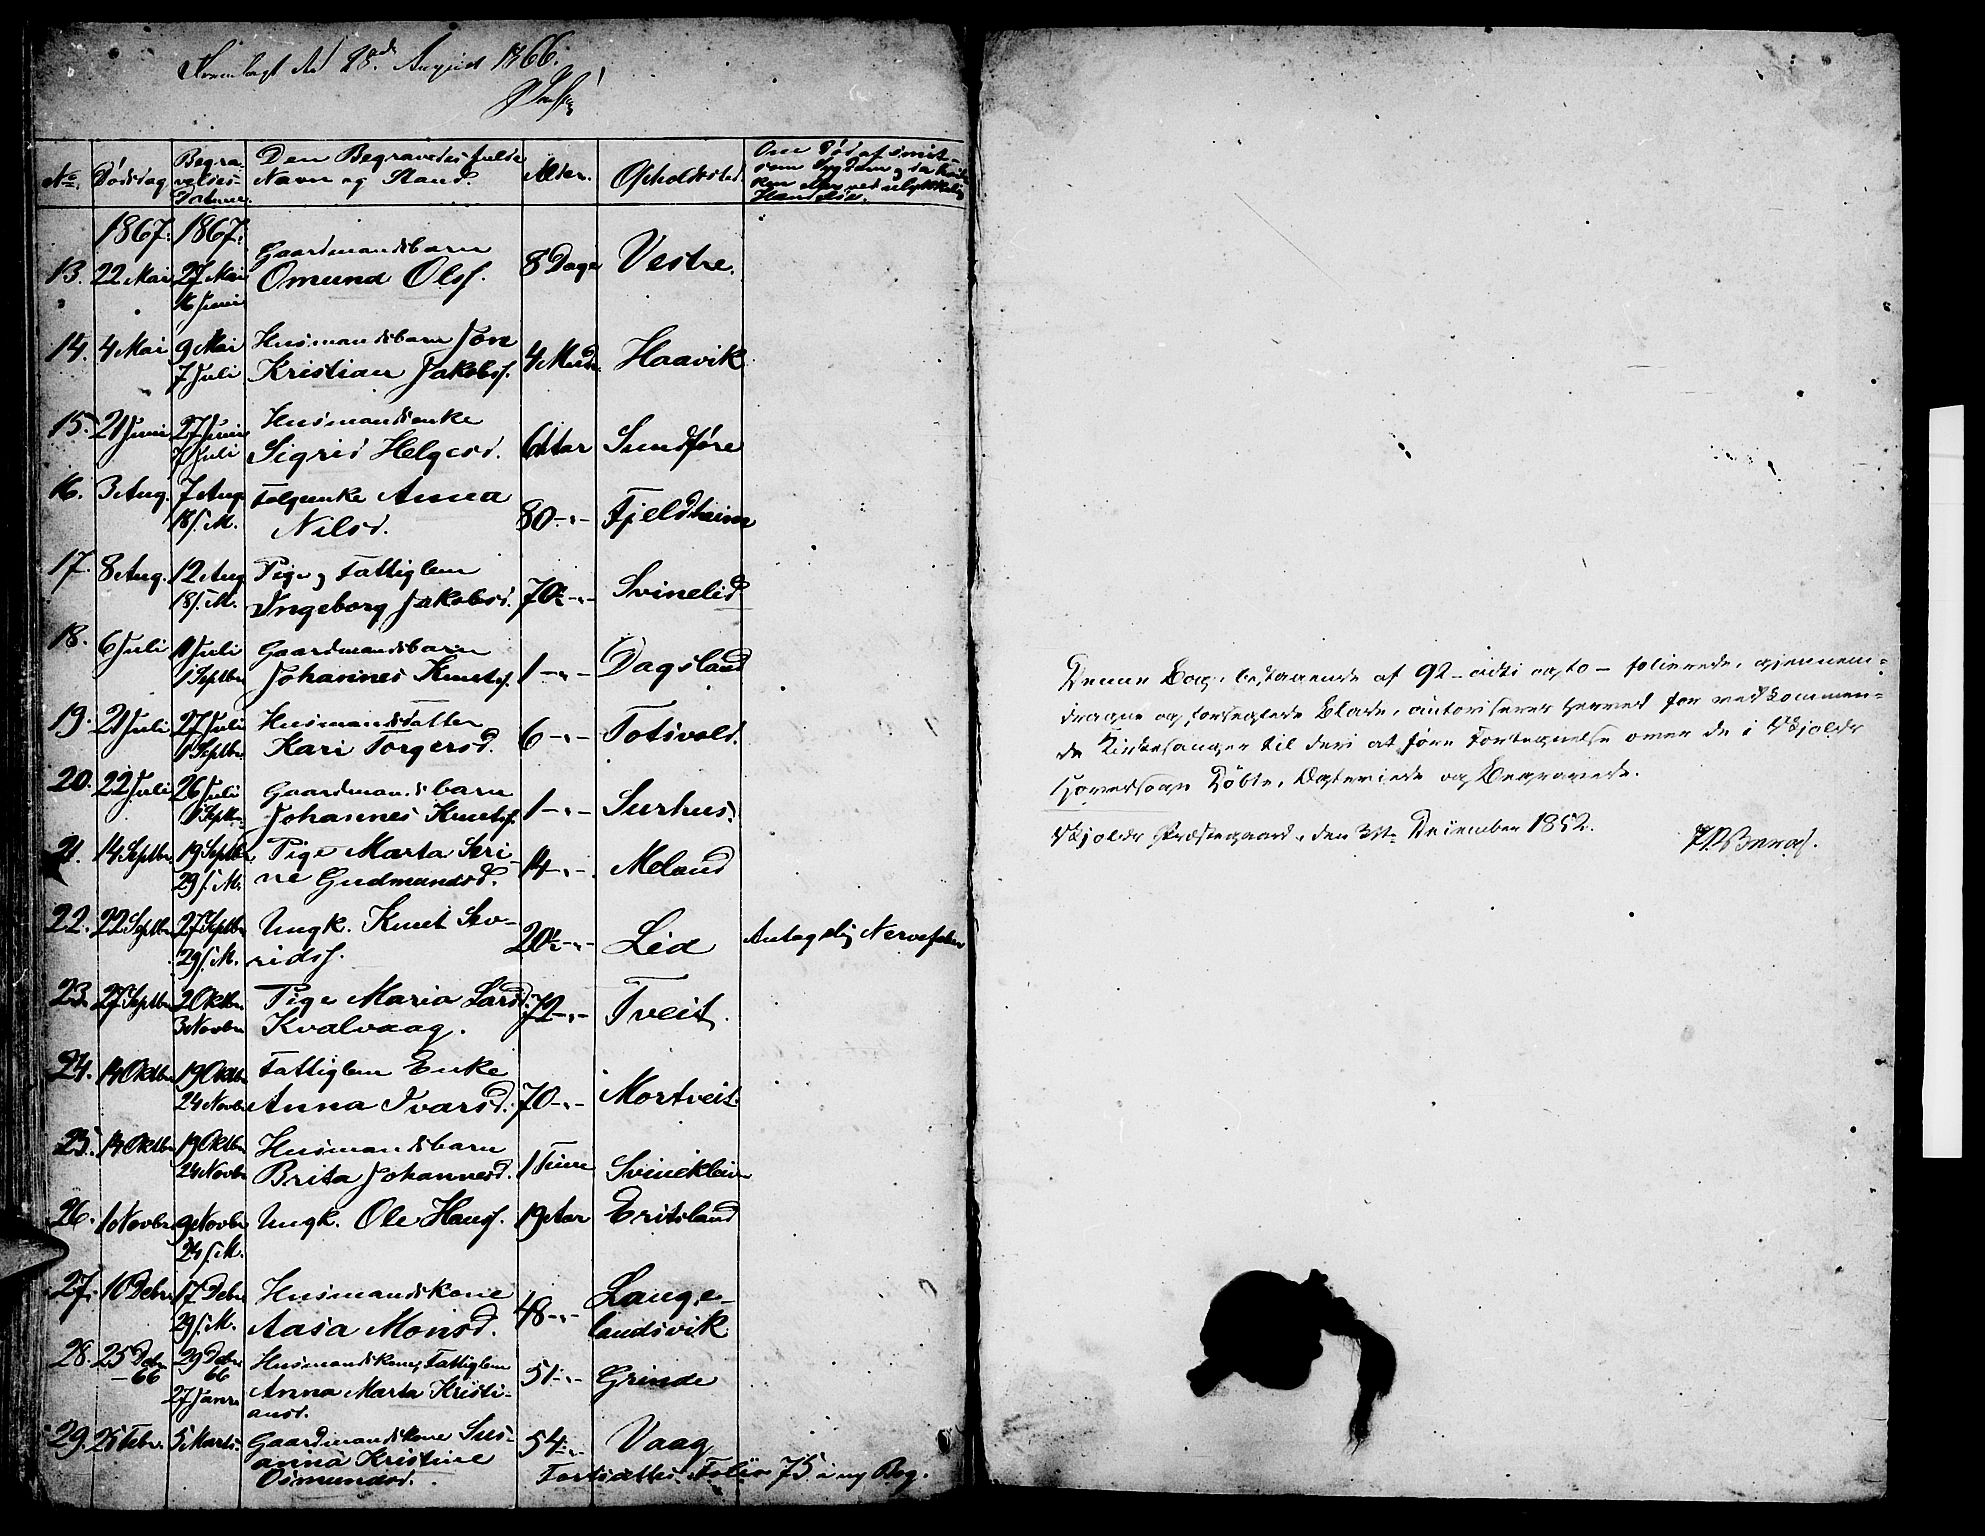 Fremlagt den 28de August 1866.
No. Dødsdag. Begra-velses-Datum. Den Begravedes fulde Navn og Stand. Alder. Opholdssted. Om Død af smit-som Sygdom
Handelse.
1867. 1867.
13. 22 Mai 27 Mai 16 Juni Gaardmandsbarn Omund Olsf. 8 Dage Vestre.
14. 4 Mai 9 Mai 7 Juli Husmandsbarn Jon Kristian Jakobsf. 4 Mndr. Haavik
15. 21 Juni 27 Juni 7 Juli Husmandsenke Sigrid Helgesd. Aar Sundføre
16. 3 Aug. 7 Aug. 18 s. M. Folgeenke Anna Nilsd. 80 -"- Fjeldheim
17. 8 Aug. 12 Aug 18 s. M. Pige og Fattiglem Ingeborg Jakobsd. 70 -"- Svinelid
18. 6 Juli 11 Juli 1 Septbr Gaardmandsbarn Johannes Knutsf. 1 -"- Dagsland
19. 21 Juli 27 Juli 1 Septbr Husmandsdatter Kari Torgersd. 6 -"- Totsvold.
20. 22 Juli 26 Juli 1 Septbr Gaardmandsbarn Johannes Knutsf. 1 -"- Surhus.
21. 14 Septbr. 19 Septbr. 29 s. M. Pige Marta Seri-ne Gudmundsd. 14 -"- Meland
22. 22 Septbr 27 Septbr 29 s. M. Ungk. Knut Siv-ridsf. 20 -"- Lid Antagelig Nervefeber
23. 27 Septbr 2 Oktbr. 3 Novbr Pige Maria Larsd. Kvalvaag. 72 -"- Tveit.
24. 14 Oktbr 19 Oktbr 24 Novbr Fattiglem Enke Anna Ivarsd. 70 -"- Mortveit.
25. 14 Oktbr 19 Oktbr 24 Novbr Husmandsbarn Brita Johannesd. 1 Time Svinekleiv
26. 1 Novbr 9 Novbr 24 s. M. Ungk. Ole Hansf. 19 Aar Eritsland
27. 10 Debr 17 Debr 29 s. M. Husmandskone Aasa Monsd. 48 -"- Lange-landsvik
28. 25 Debr -66 29 Debr 66 27 Janr. Husmandskone, Fattiglem Anna Marta Kristi-ansd. 51 -"- Grinde
29. 25 Febr. 5 Marts. Gaardmandskone Sus-anna Kristine Osmundsd. 54 -"- Vaag
Fortsættes Folio 75 i ny Bog.
Denne Bog, bestaaende af 92 - otti og to - folierede, gjennem-
dragne og forseglede Blade, autoriseres herved for vedkommen-
de Kirkesanger til deri at føre Fortegnelse over de i Skjolds
Hovedsogn Døbte, Egteviede og Begravede.
Skjolds Præstegaard, den 31te December 1852.